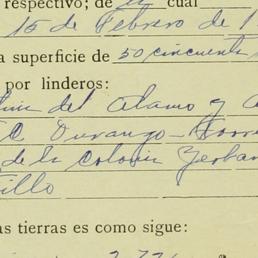 respectivo; de la cual
15 de Febrero de 1
a superficie de 50 cincuenta
por linderos:
del Alamo y
Durango-
de la colonia Zerban
illo
as tierras es como sigue: